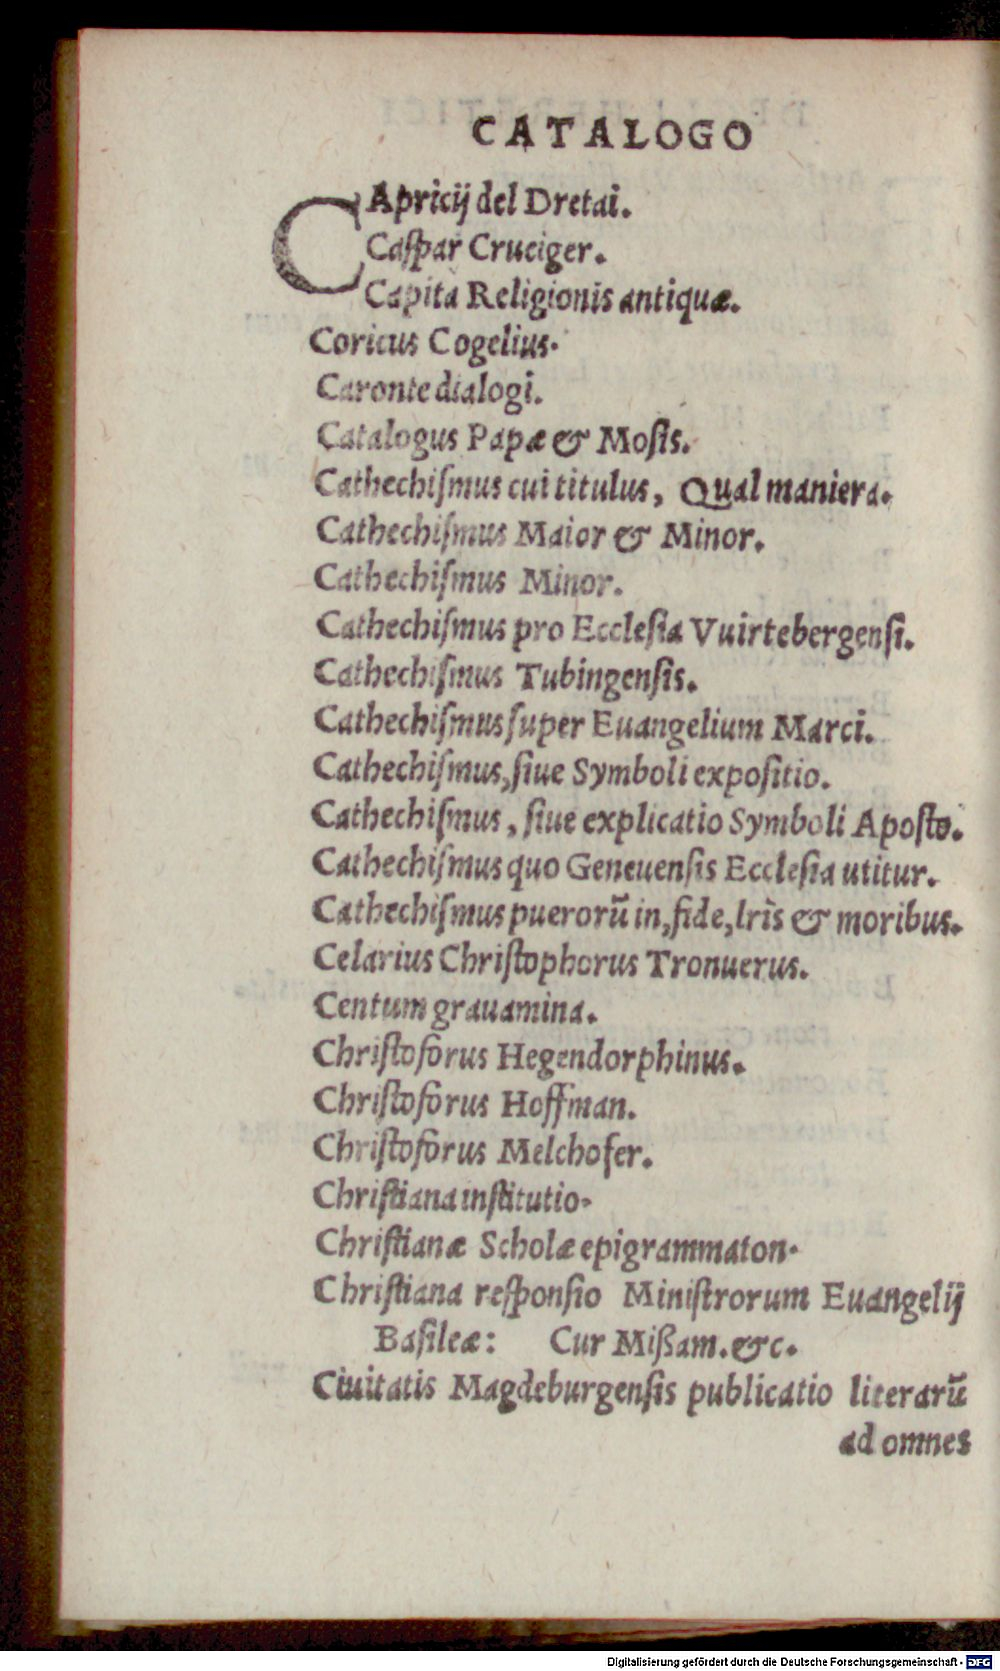 CATALOGO
CApricij del Dretai.
Caſpar Cruciger.
Capita Religionis antiquæ.
Coricus Cogelius.
Caronte dialogi.
Catalogus Papæ & Moſis.
Cathechiſmus cui titulus, Qual maniera.
Cathechiſmus Maior & Minor.
Cathechiſmus Minor.
Cathechiſmus pro Eccleſia Vuirtebergenſi.
Cathechiſmus Tubingenſis.
Cathechiſmus ſuper Euangelium Marci.
Cathechiſmus, ſiue Symboli expoſitio.
Cathechiſmus, ſiue explicatio Symboli Apoſto.
Cathechiſmus quo Geneuenſis Eccleſia utitur.
Cathechiſmus puerorū in, fide, lrìs & moribus.
Celarius Chriſtophorus Tronuerus.
Centum grauamina.
Chriſtoforus Hegendorphinus.
Chriſtoforus Hoffman.
Chriſtoforus Melchofer.
Chriſtiana inſtitutio.
Chriſtianæ Scholæ epigrammaton.
Chriſtiana reſponſio Miniſtrorum Euangelij
Baſileæ: Cur Mißam. &c.
Ciuitatis Magdeburgenſis publicatio literarū
ad omnes
Digitalisierung gefördert durch die Deutsche Forschungsgemeinschaft - DFG